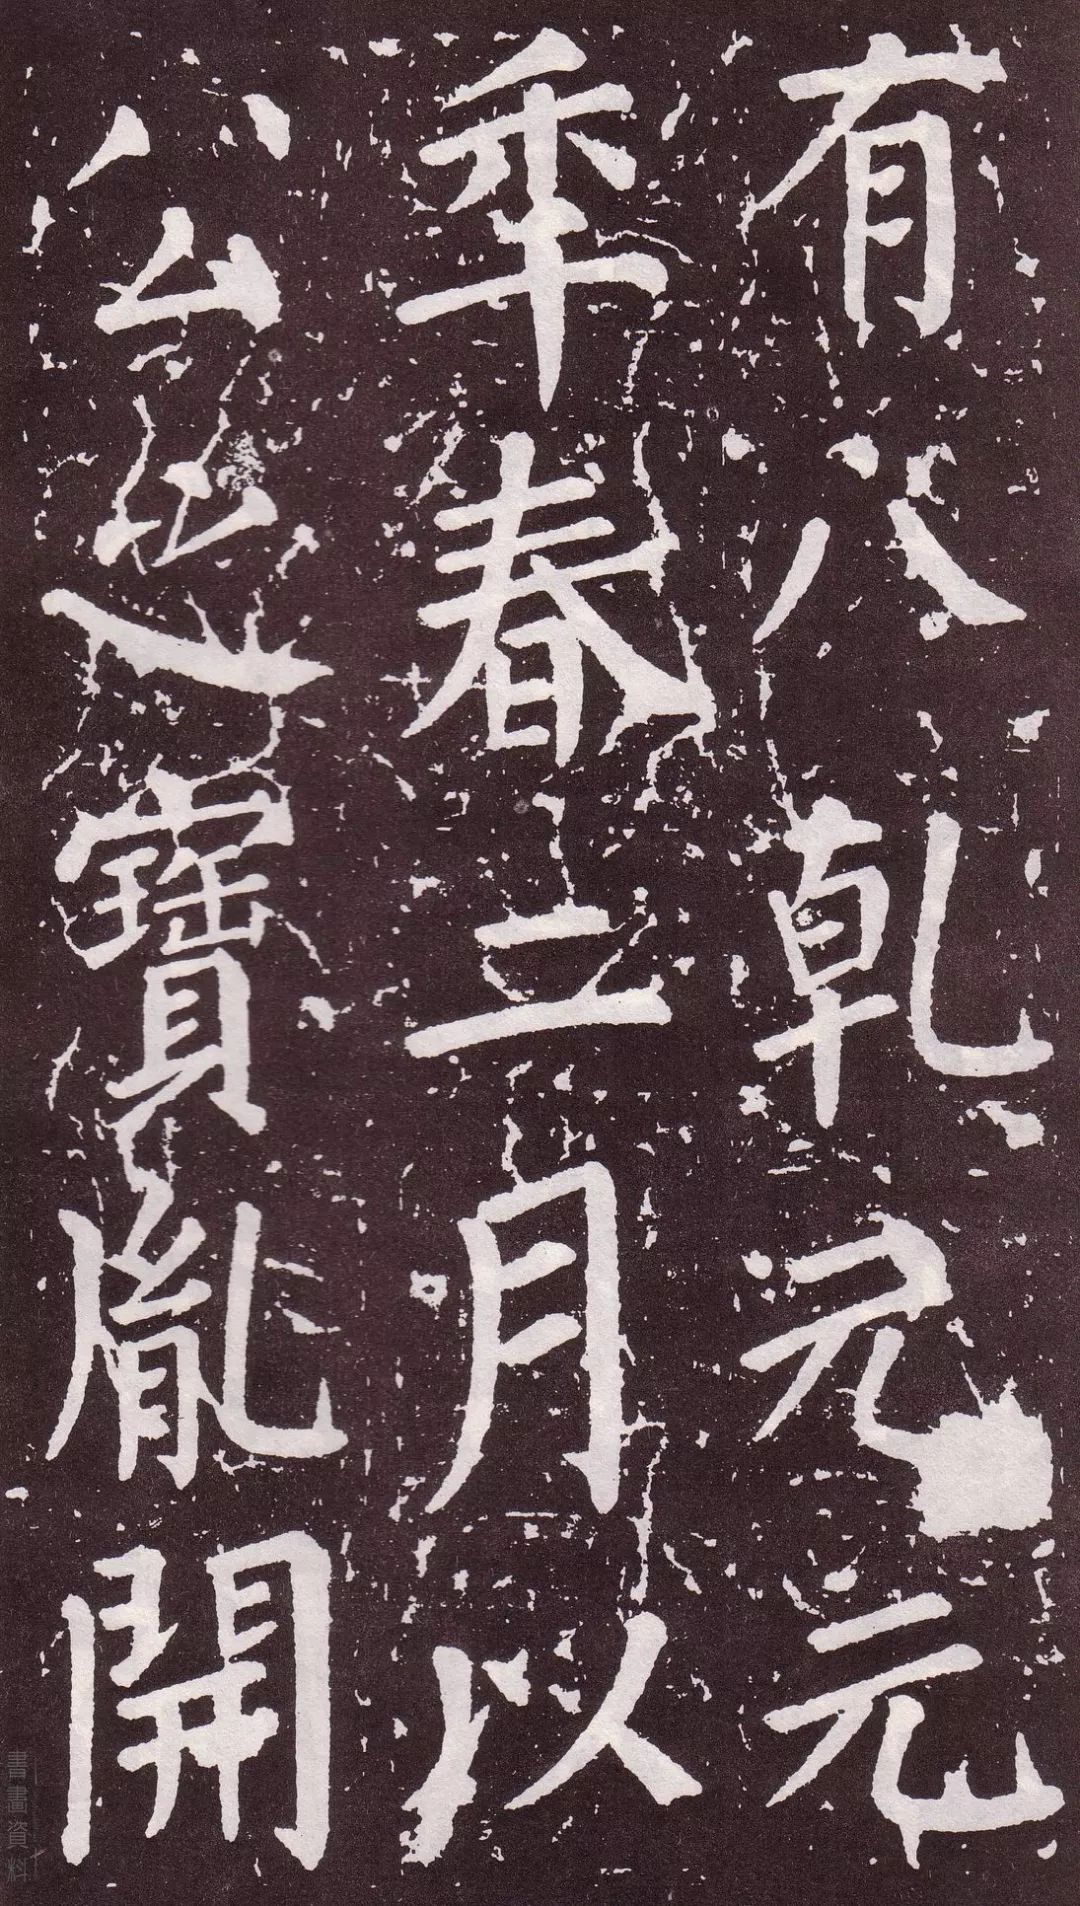 有八乾元元
年春二月以
公之寶胤開
書畫資料